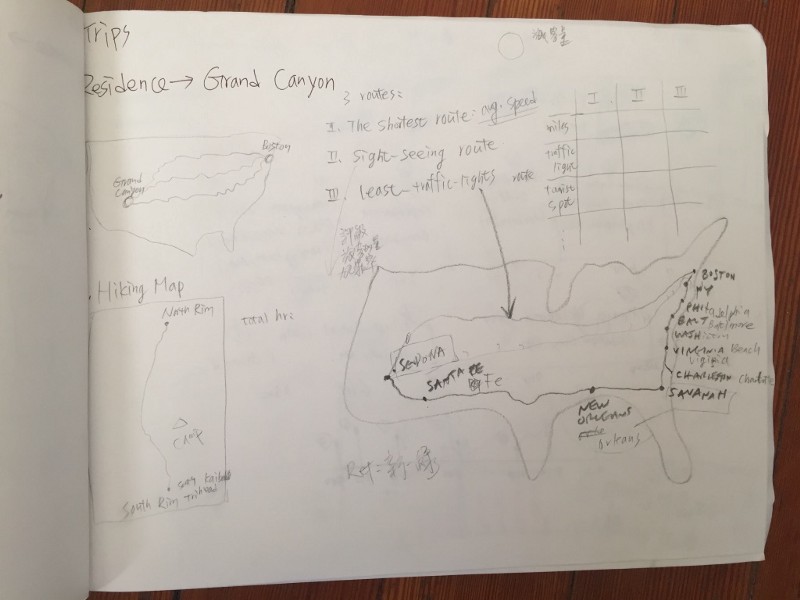 Trips
Residence → Grand Canyon
3 routes:
I. The shortest route: avg. speed
II. Sight-seeing route
III. least-traffic-lights route
I II III
miles
traffic
light
tourist
spot
Boston
Grand
Canyon
Hiking Map
North Rim
Total hr:
CAMP
South Rim
BOSTON
NY
PHILadelphia
BALT Baltimore
WASHington
VIRGINIA Beach
CHARLESON
SAVANAH
SEDONA
SANTA FE
Fe
NEW
ORLEANS
Orleans